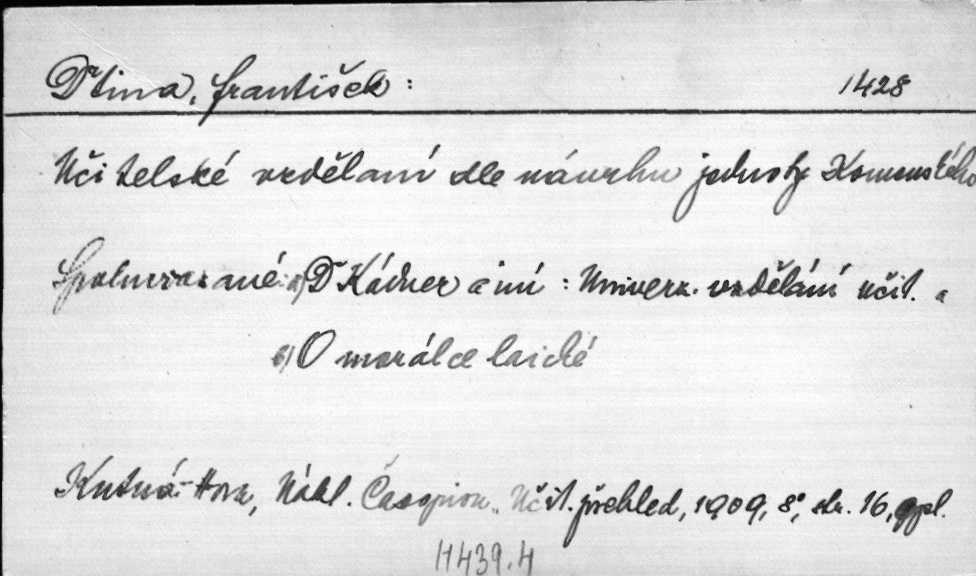 Drtina, František: 1428
Učitelské vzdělání dle návrhu jednoty Komenského
Spolusvázané: a) Dr Kádner a jiní: Univerz. vzdělání učit. a
b) O morálce laické
Kutná-Hora, Nákl. Časopisu "Učit. přehled, 1909, 8°, str. 16, ppl.
H 439.4